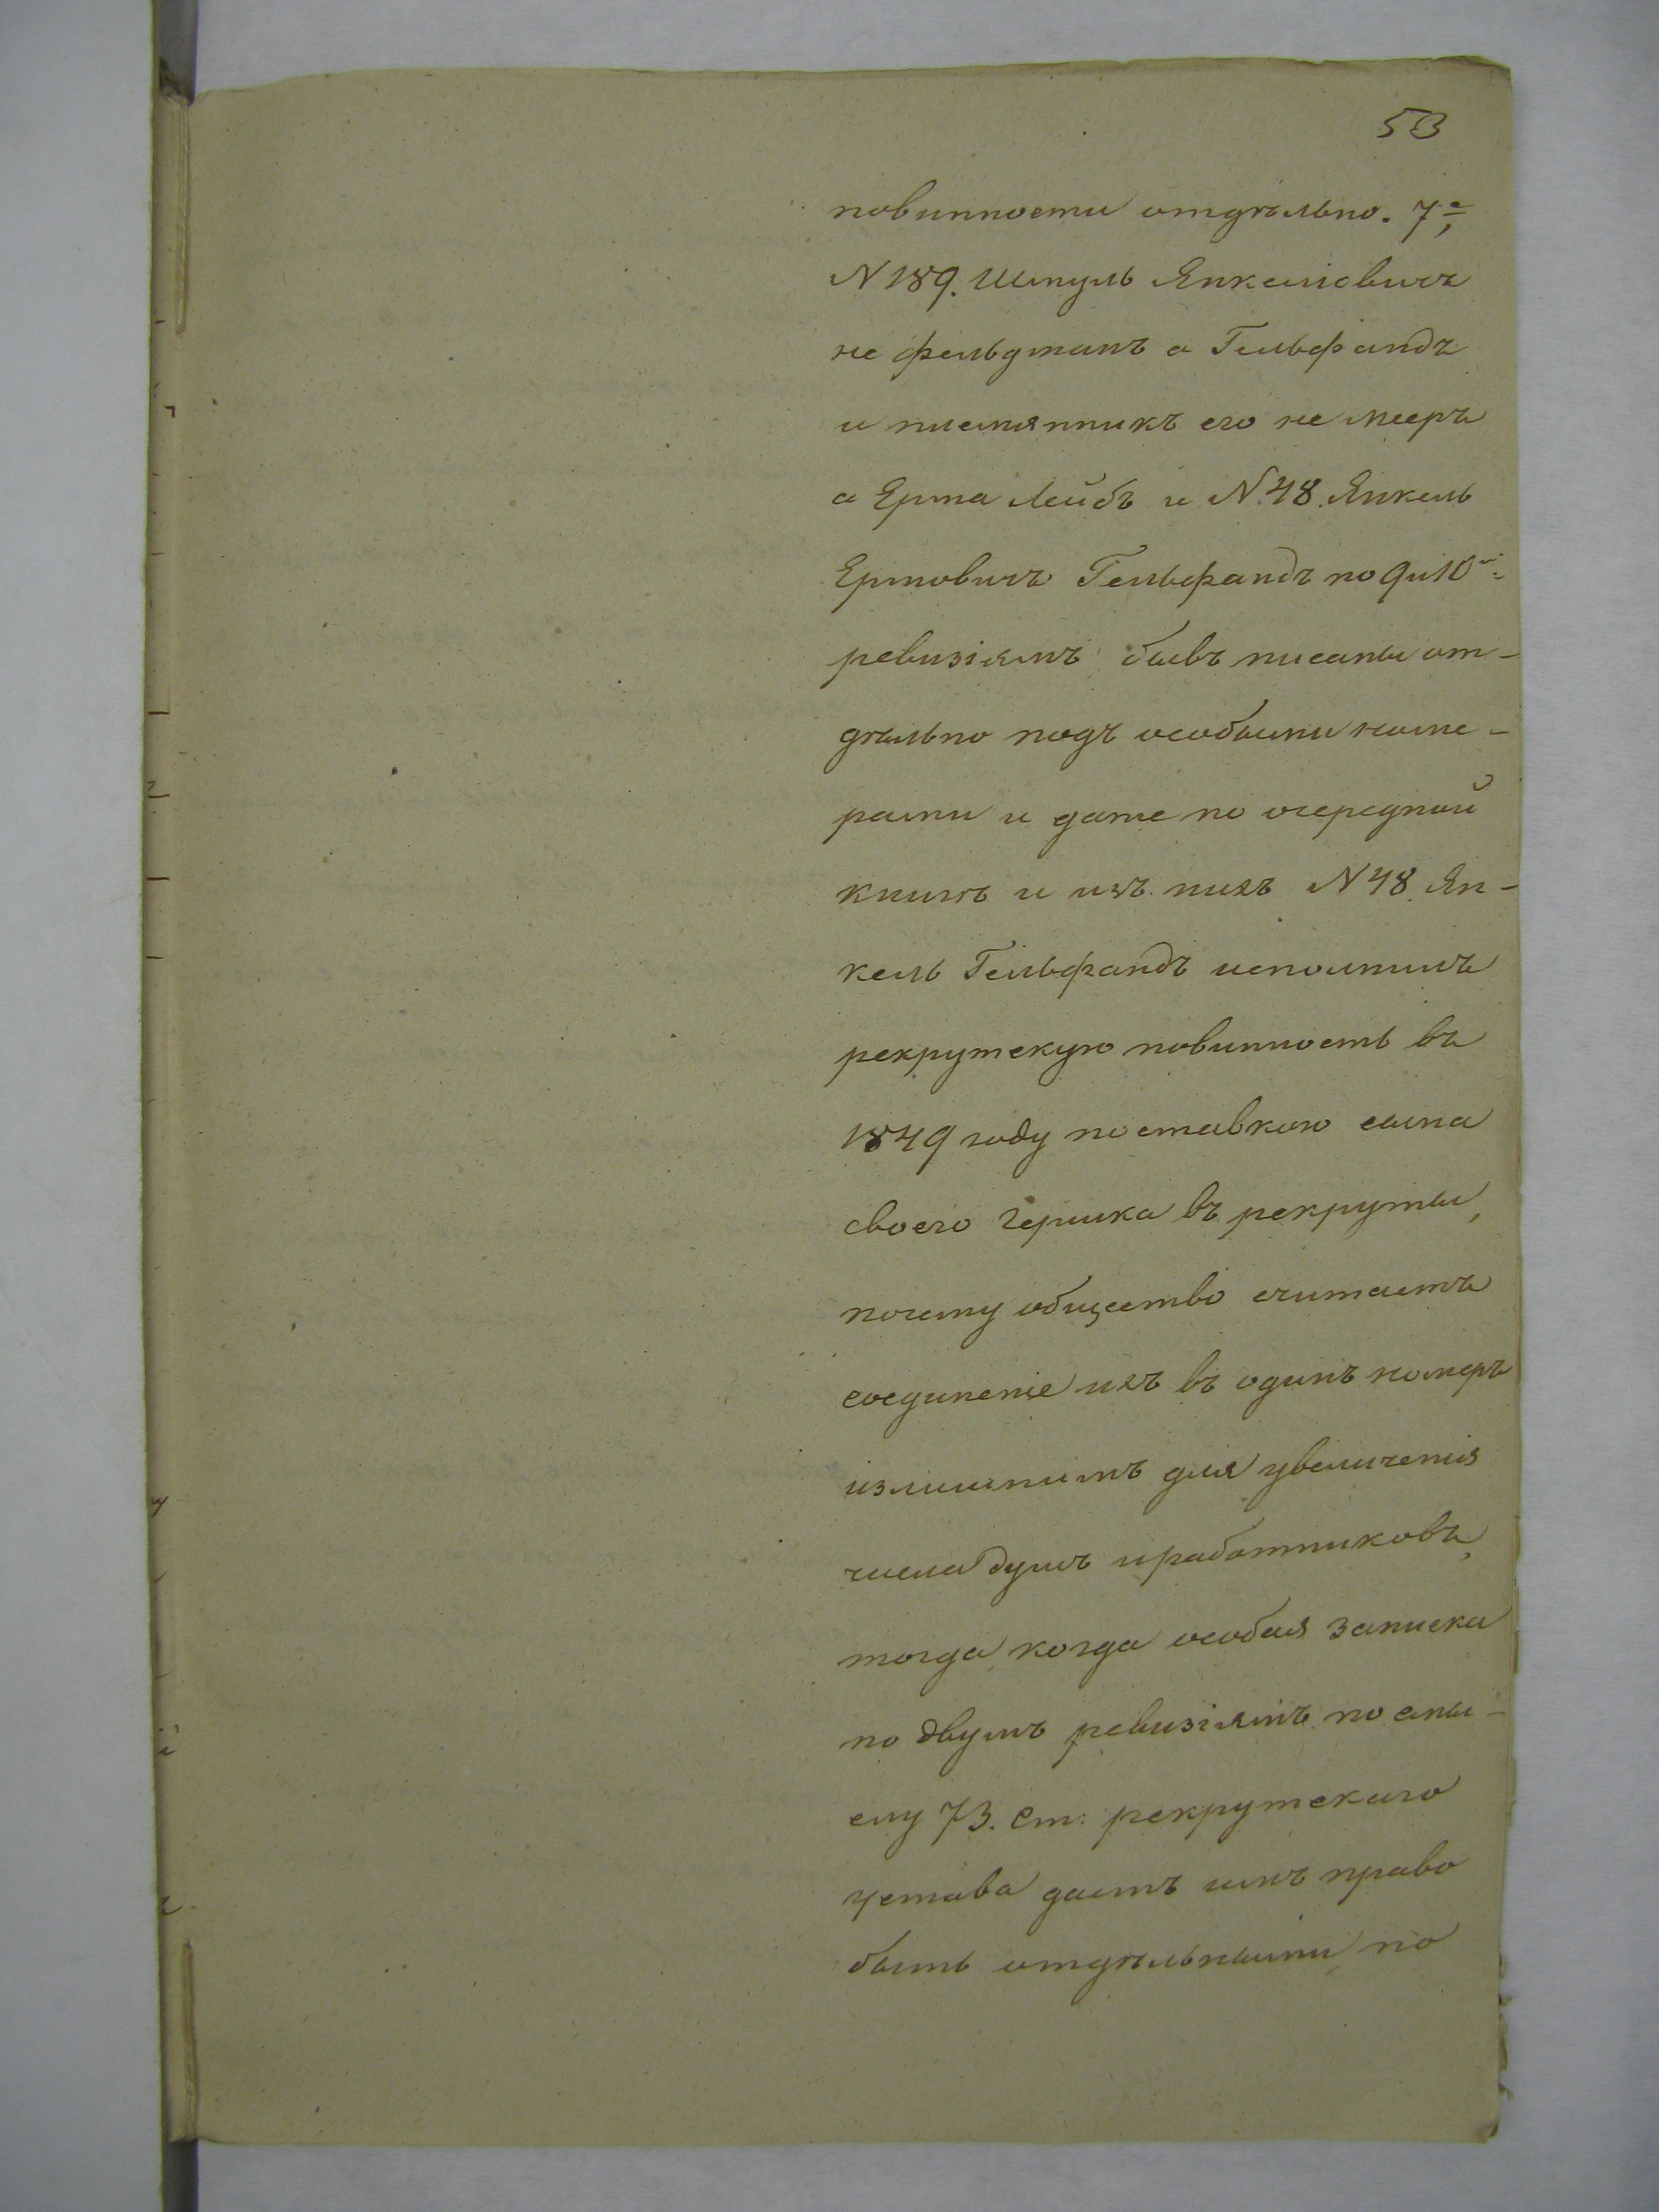 53
повинности отдѣльно. 7е,
N 189. Шмуль Янкелевичъ
не Фельдманъ а Гельфандъ
и племянникъ его не Мееръ
а Ерма Лейбъ и N. 48. Янкель
Ермовичъ Гельфандъ по 9 и 10й
ревизіямъ бывъ писаны от-
дѣльно подъ особыми номе-
рами и даже по очередной
книгѣ и изъ нихъ N 48. Ян-
кель Гельфандъ исполнилъ
рекрутскую повинность въ
1849 году поставкою сына
своего Гершка въ рекруты,
почему общество считаетъ
соединеніе ихъ въ одинъ номеръ
излишнимъ для увеличенія
числа душъ и работниковъ,
тогда когда особая записка
по двумъ ревизіямъ по смы-
слу 73. ст. рекрутскаго
устава даетъ имъ право
быть отдѣльными, по